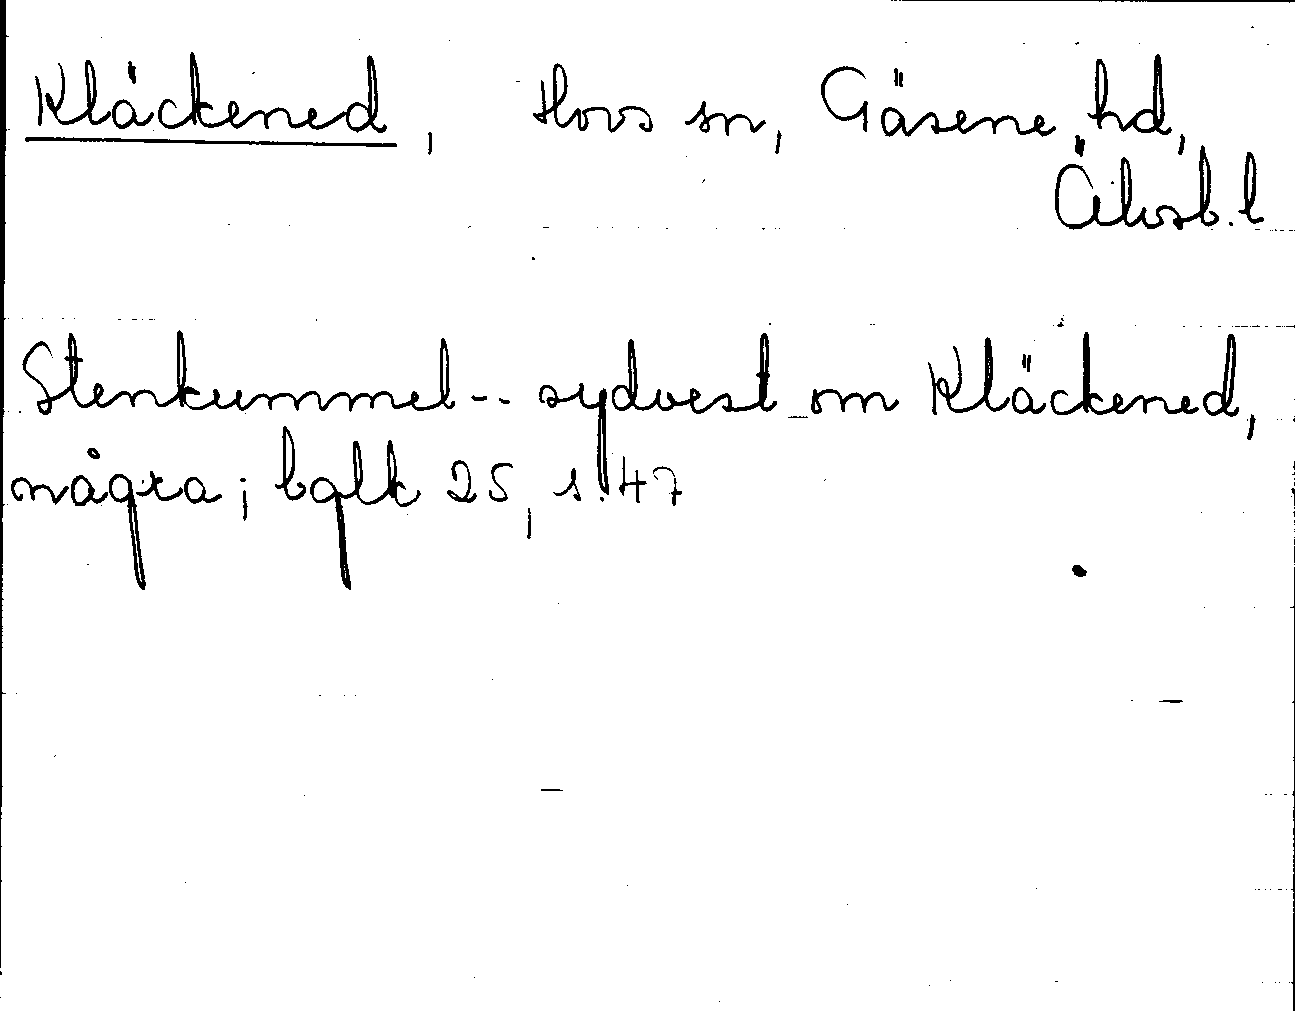 Kläckened, Hovs sn, Gäsene hd,
Älvsb. l
Stenkummel -- sydvest om Kläckened,
några; bglk 25, s. 47